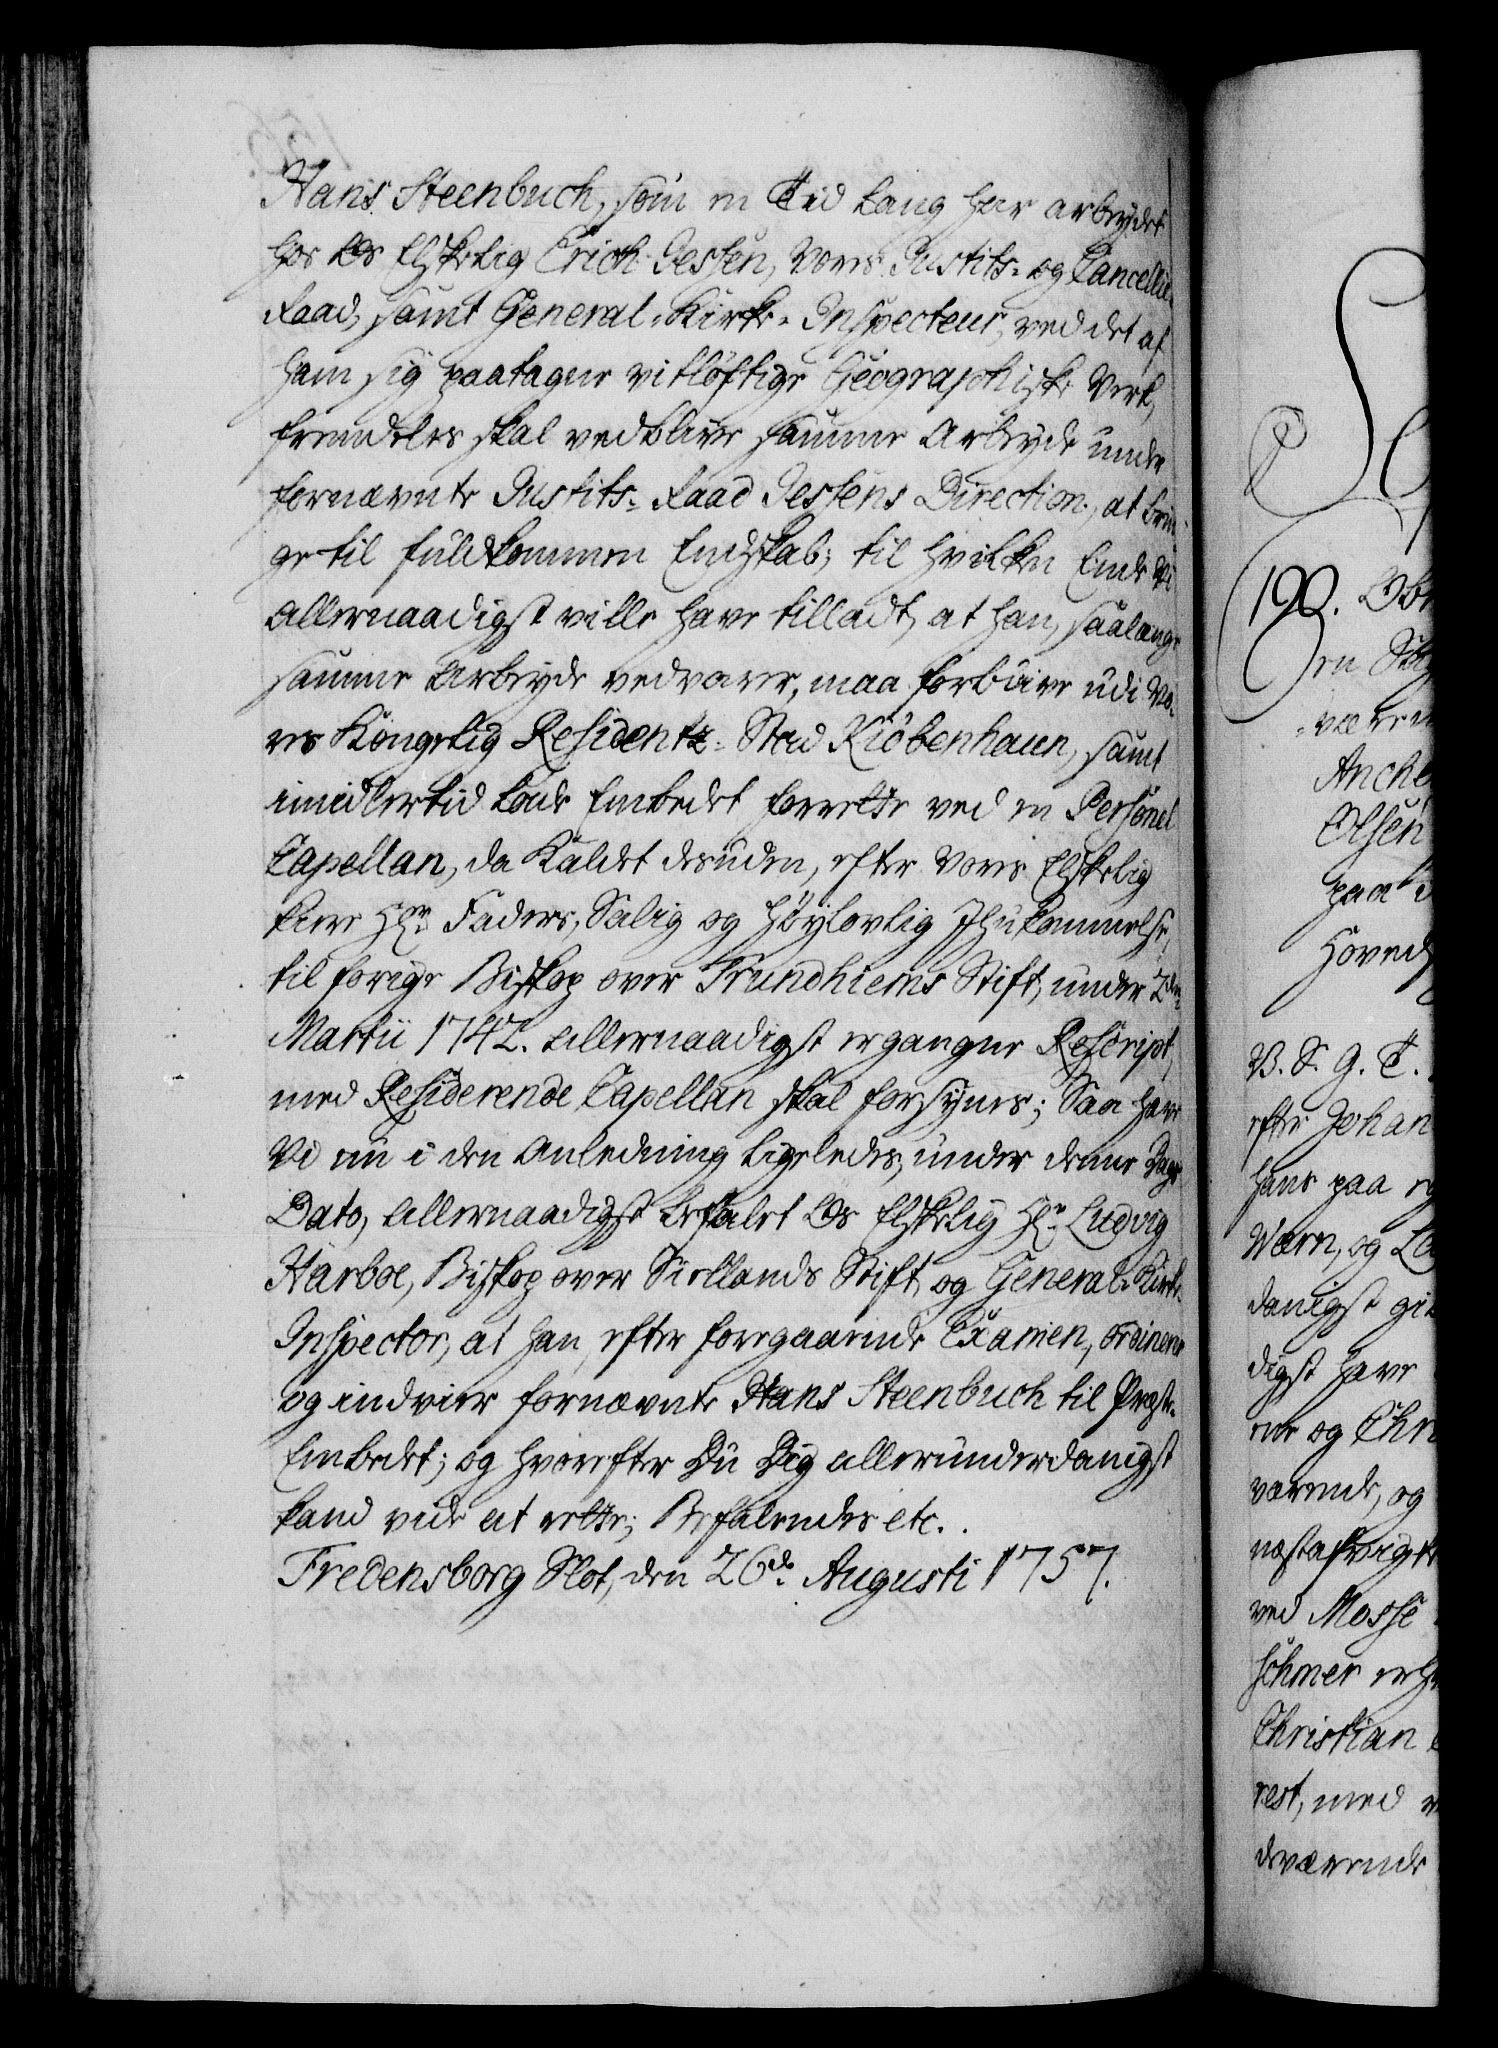 Hans Steenbuch, som en Tid lang har arbeydet
hos Os Elskelig Erich Jessen, Vores Justits- og Cancellie-
Raad, samt General-Kirke-Inspecteur, ved det af
ham sig paatagne vitløftige Geographiske Verk,
fremdeles skal vedblive samme Arbeyde under
fornævnte Justits-Raad Jessens Direction, at brin-
ge til fuldkommen Endskab; til hvilken Ende Vi
allernaadigst ville have tilladt, at han, saalænge
samme Arbeyde vedvarer, maa forblive udi Vo-
res Kongelig Residentz-Stad Kiöbenhaun, samt
imidlertid lade Embedet forrette ved en Personel
Capellan, da Kaldet desuden, efter Vores Elskelig
kiere Hr. Faders, Salig og Høylovlig Ihukommelse,
til forige Biskop over Trundhiems Stift, under 2den
Martii 1742. allernaadigst ergangne Rescript,
med Residerende Capellan skal forsynes; Saa have
Vi nu i den Anledning ligeledes, under denne Dags
Dato, allernaadigst befalet Os Elskelig Hr. Ludvig
Harboe, Biskop over Siellands Stift og General-Kirke-
Inspector, at han, efter foregaaende Examen, ordinerer
og indvier fornævnte Hans Steenbuch til Præste-
Embedet; og hvorefter Du Dig allerunderdanigst
kand vide at rette; Befalendes etc.
Fredensborg Slot, den 26de Augusti 1757.
190.
en
være
Anche
Olsen
paa
Hoved
V. S. G. T.
efter Johan
hans paa
Værn, og
danigst gi
digst have
og Chri
værende, og
ved Mosse
schmer
Christian
rest, med
dværende